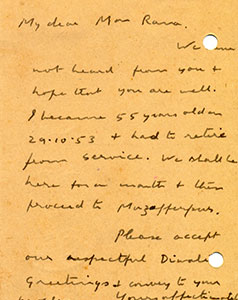 My dear Mon Rana.
We have
not heard from you &
hope that you are well.
I became 55 years old on
29.10.53 & had to retire
from service. We shall be
here for a month & then
proceed to Mozafferpur.
Please accept
our respectful Diwali
Greetings & convey to your
Yours affectionately